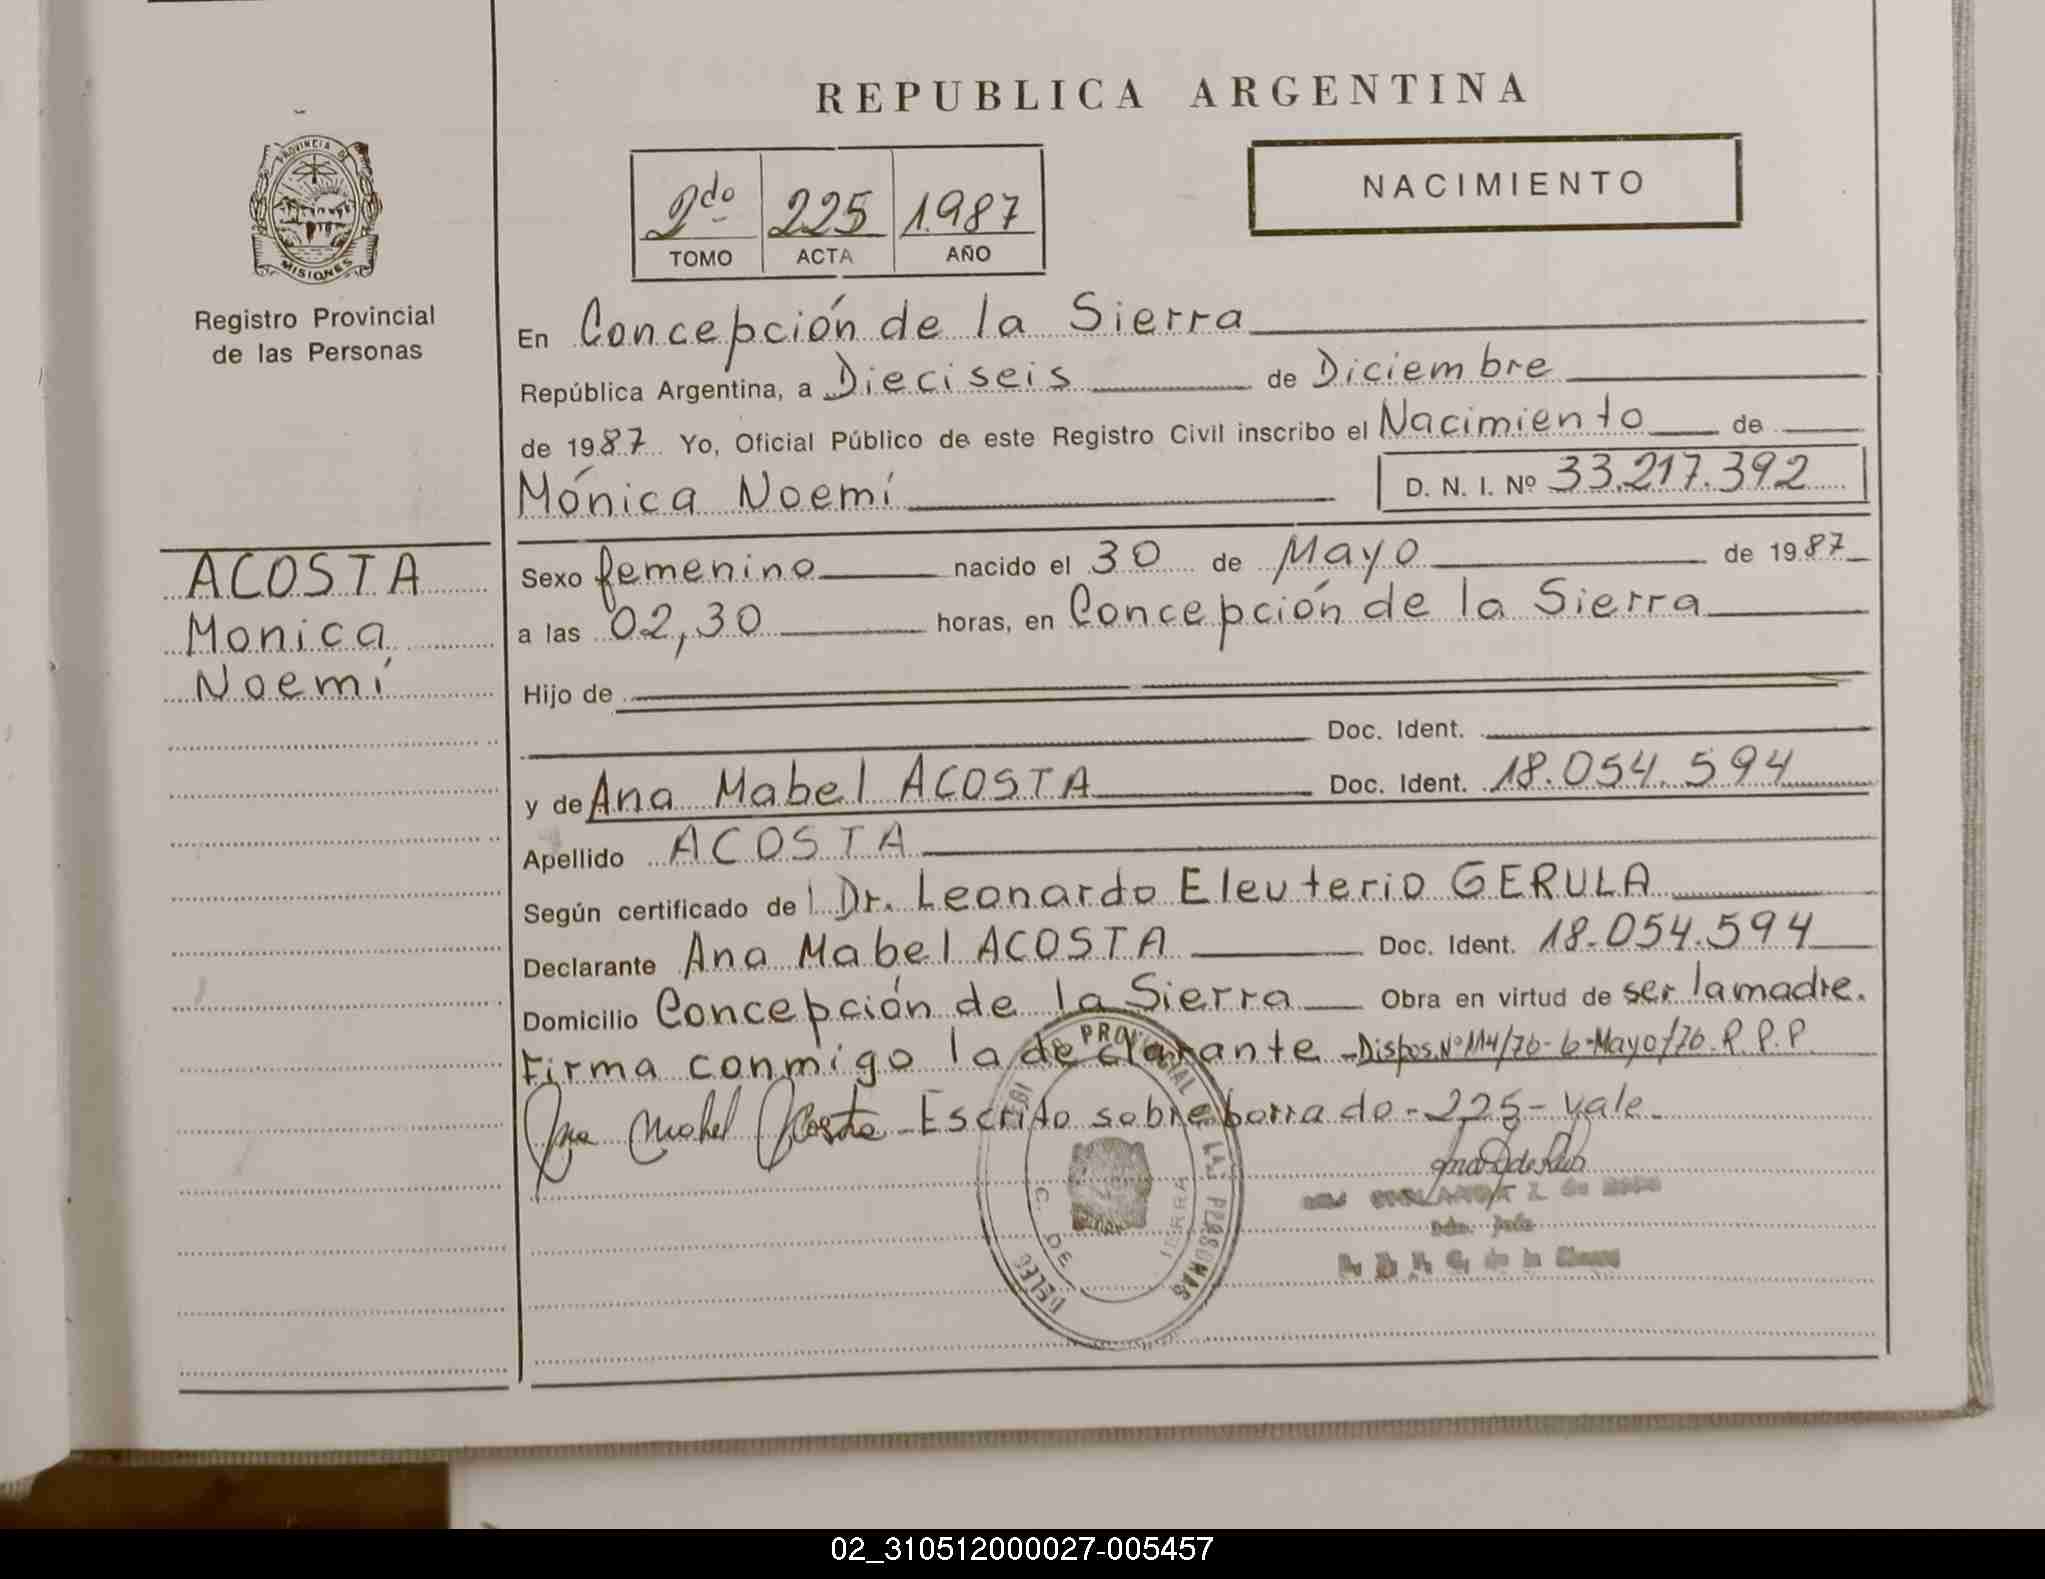 REPUBLICA ARGENTINA
PROVINCIA DE
MISIONES
Registro Provincial
de las Personas
2do 225 1987
TOMO ACTA AÑO
NACIMIENTO
En Concepción de la Sierra
República Argentina, a Dieciseis de Diciembre
de 1987 Yo, Oficial Público de este Registro Civil inscribo el Nacimiento de
Mónica Noemí D. N. I. Nº 33.217.392
ACOSTA
Monica
Noemí
Sexo femenino nacido el 30 de Mayo de 1987
a las 02,30 horas, en Concepción de la Sierra
Hijo de
Doc. Ident.
y de Ana Mabel ACOSTA Doc. Ident. 18.054.594
Apellido ACOSTA
Según certificado del Dr. Leonardo Eleuterio GERULA
Declarante Ana Mabel ACOSTA Doc. Ident. 18.054.594
Domicilio Concepción de la Sierra Obra en virtud de ser la madre.
Firma conmigo la declarante - Dispos. Nº 114/76-6-Mayo/76. R. P. P.
Ana Mabel Acosta - Escrito sobre borrado - 225 - vale.
PROVINCIAL LAS PERSONAS
DELEG
C. DE
02_310512000027-005457